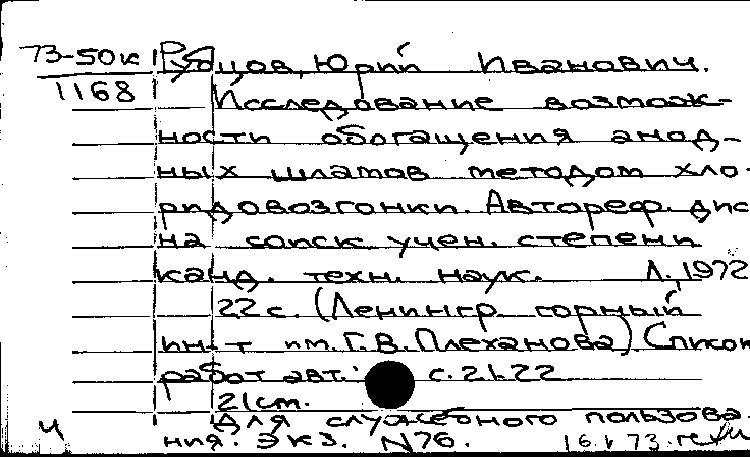 73-50к
1168
Юрий Иванович.
Исследование возмож-
ности обогащения анод-
ных шламов методом хло-
ридовозгонки. Автореф. дис
на соиск учен. степени
канд. техн. наук. Л., 1972
22 с. (Ленингр. горный
ин-т им. Г. В. Плеханова) Список
работ авт.: с. 21-22
21 см.
Для служебного пользова-
ч
ния. Экз. N76. 16.V 73.